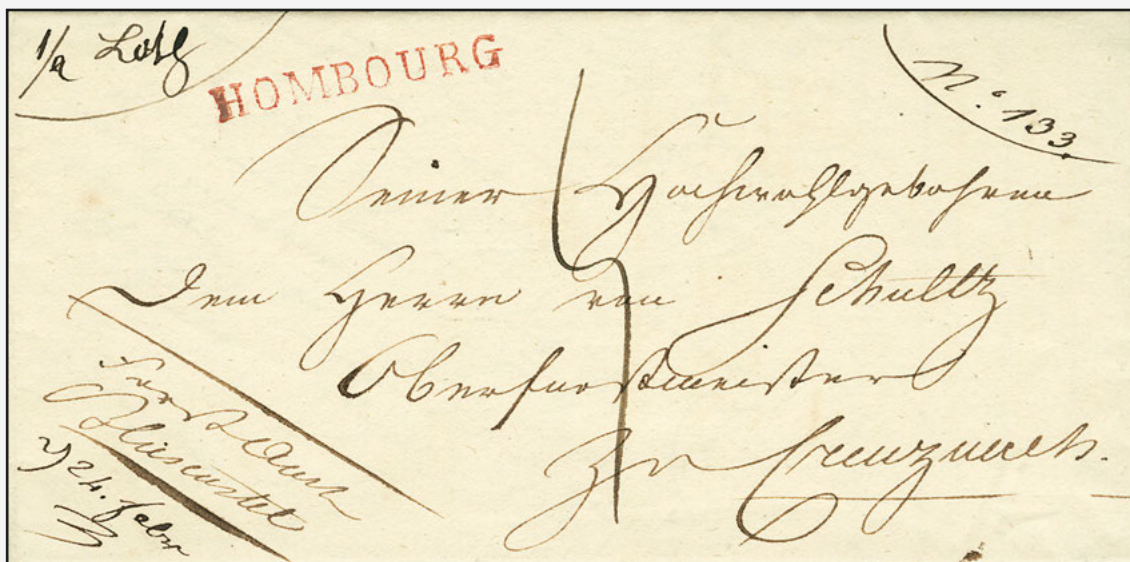 1/2 Loth
HOMBOURG
N.° 133.
Seiner Hochwohlgebohren
dem Herrn von Schultz
Oberforstmeister
Zu Creuznach.
Forst Amt
Bliescastel
24. Febr